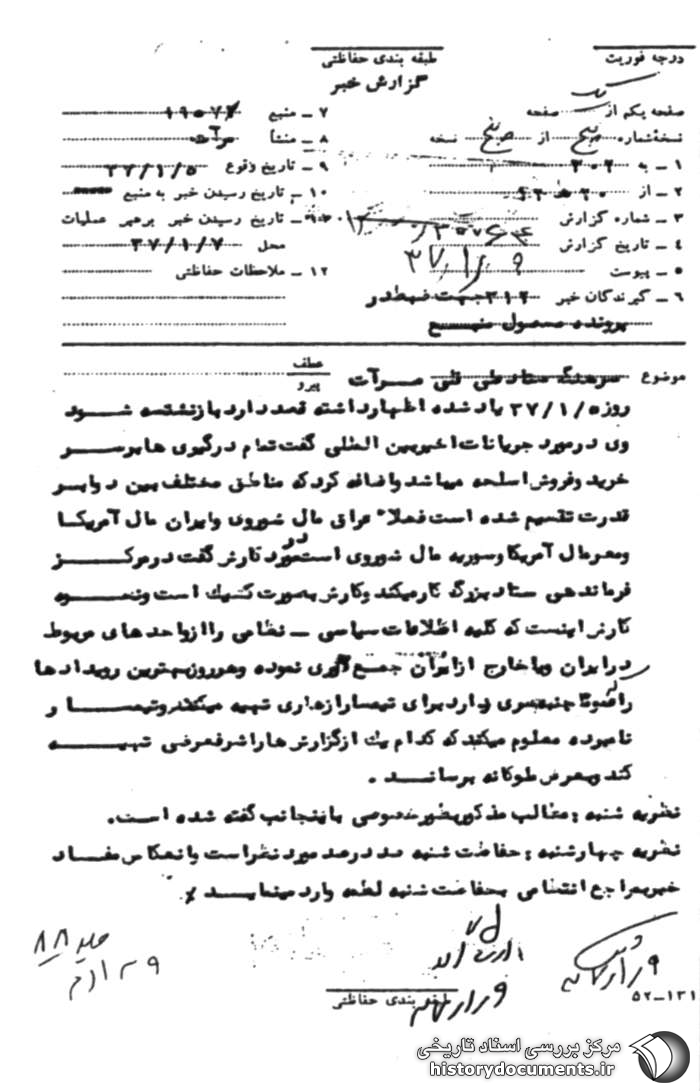 درجه فوریت
طبقه بندی حفاظتی
گزارش خبر
صفحه یکم از یک صفحه
نسخهٔ شماره پنج از پنج نسخه
۱ ـ به ۳۰۲
۲ ـ از ۲۰
۳ ـ شماره گزارش
۴ ـ تاریخ گزارش
۵ ـ پیوست
۶ ـ گیرندگان خبر ۳۱۲ جهت ضبط در
پرونده محصول منبع
۷ ـ منبع
۸ ـ منشأ مرآت
۹ ـ تاریخ وقوع ۳۷/۱/۵
۱۰ ـ تاریخ رسیدن خبر به منبع
ـ تاریخ رسیدن خبر برهبر عملیات
محل ۳۷/۱/۷
۱۲ ـ ملاحظات حفاظتی
موضوع سرهنگ ستاد علی قلی مرآت
عطف
پیرو
روز ۳۷/۱/۵ یاد شده اظهار داشته قصد دارد بازنشسته شود
وی در مورد جریانات اخیر بین المللی گفت تمام درگیری ها بر سر
خرید و فروش اسلحه میباشد و اضافه کرد که مناطق مختلف بین دو ابر
قدرت تقسیم شده است فعلاً عراق مال شوروی و ایران مال آمریکا
و مصر مال آمریکا و سوریه مال شوروی است در مورد کارش گفت در مرکز
فرماندهی ستاد بزرگ کار میکند و کارش بصورت کشیک است و نحوه
کارش اینست که کلیه اطلاعات سیاسی ـ نظامی را از واحدهای مربوط
در ایران و یا خارج از ایران جمع آوری نموده و هر روز مهمترین رویدادها
را که جنبه سری دارد برای تیمسار ازهاری تهیه میکند و تیمسار
نامبرده معلوم میکند که کدام یک از گزارش ها را شرفعرضی تهیه
کند و بعرض ملوکانه برساند .
نظریه شنبه : مطالب مذکور بطور خصوصی باینجانب گفته شده است.
نظریه چهارشنبه : حفاظت شنبه صد در صد مورد نظر است و انعکاس مفاد
خبر بمراجع انتظامی بحفاظت شنبه لطمه وارد مینماید
طبقه بندی حفاظتی
۵۲ـ۱۳۱
مرکز بررسی اسناد تاریخی
historydocuments.ir